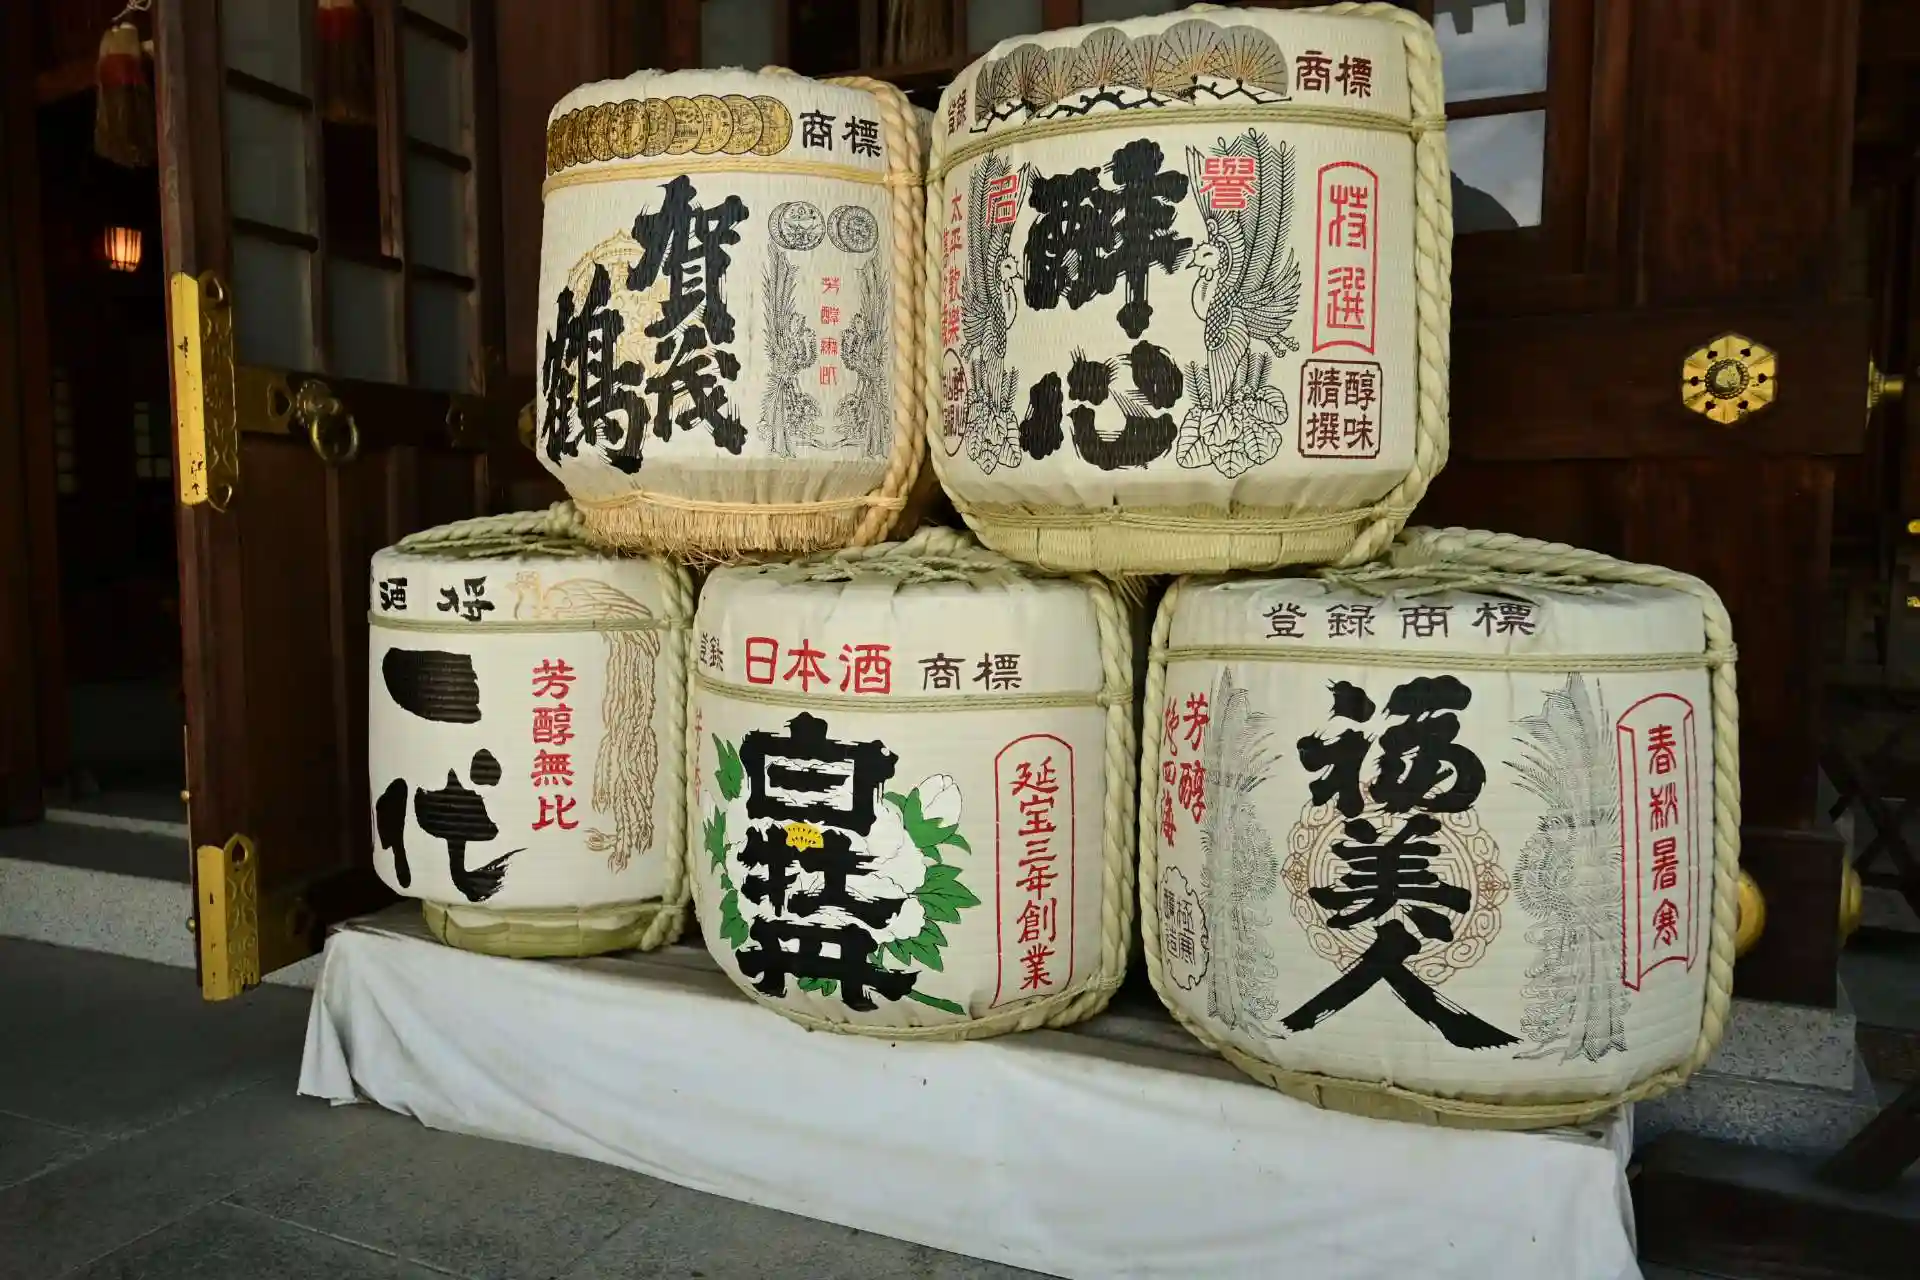 商標
賀茂
鶴
芳醇無比
登録
商標
名
譽
酔心
太平歓楽
特選
醇味
精撰
酒 将
一代
芳醇無比
登録
日本酒
商標
白牡丹
延宝三年創業
登録商標
芳醇
絶四海
極東
醸造
福美人
春秋暑寒